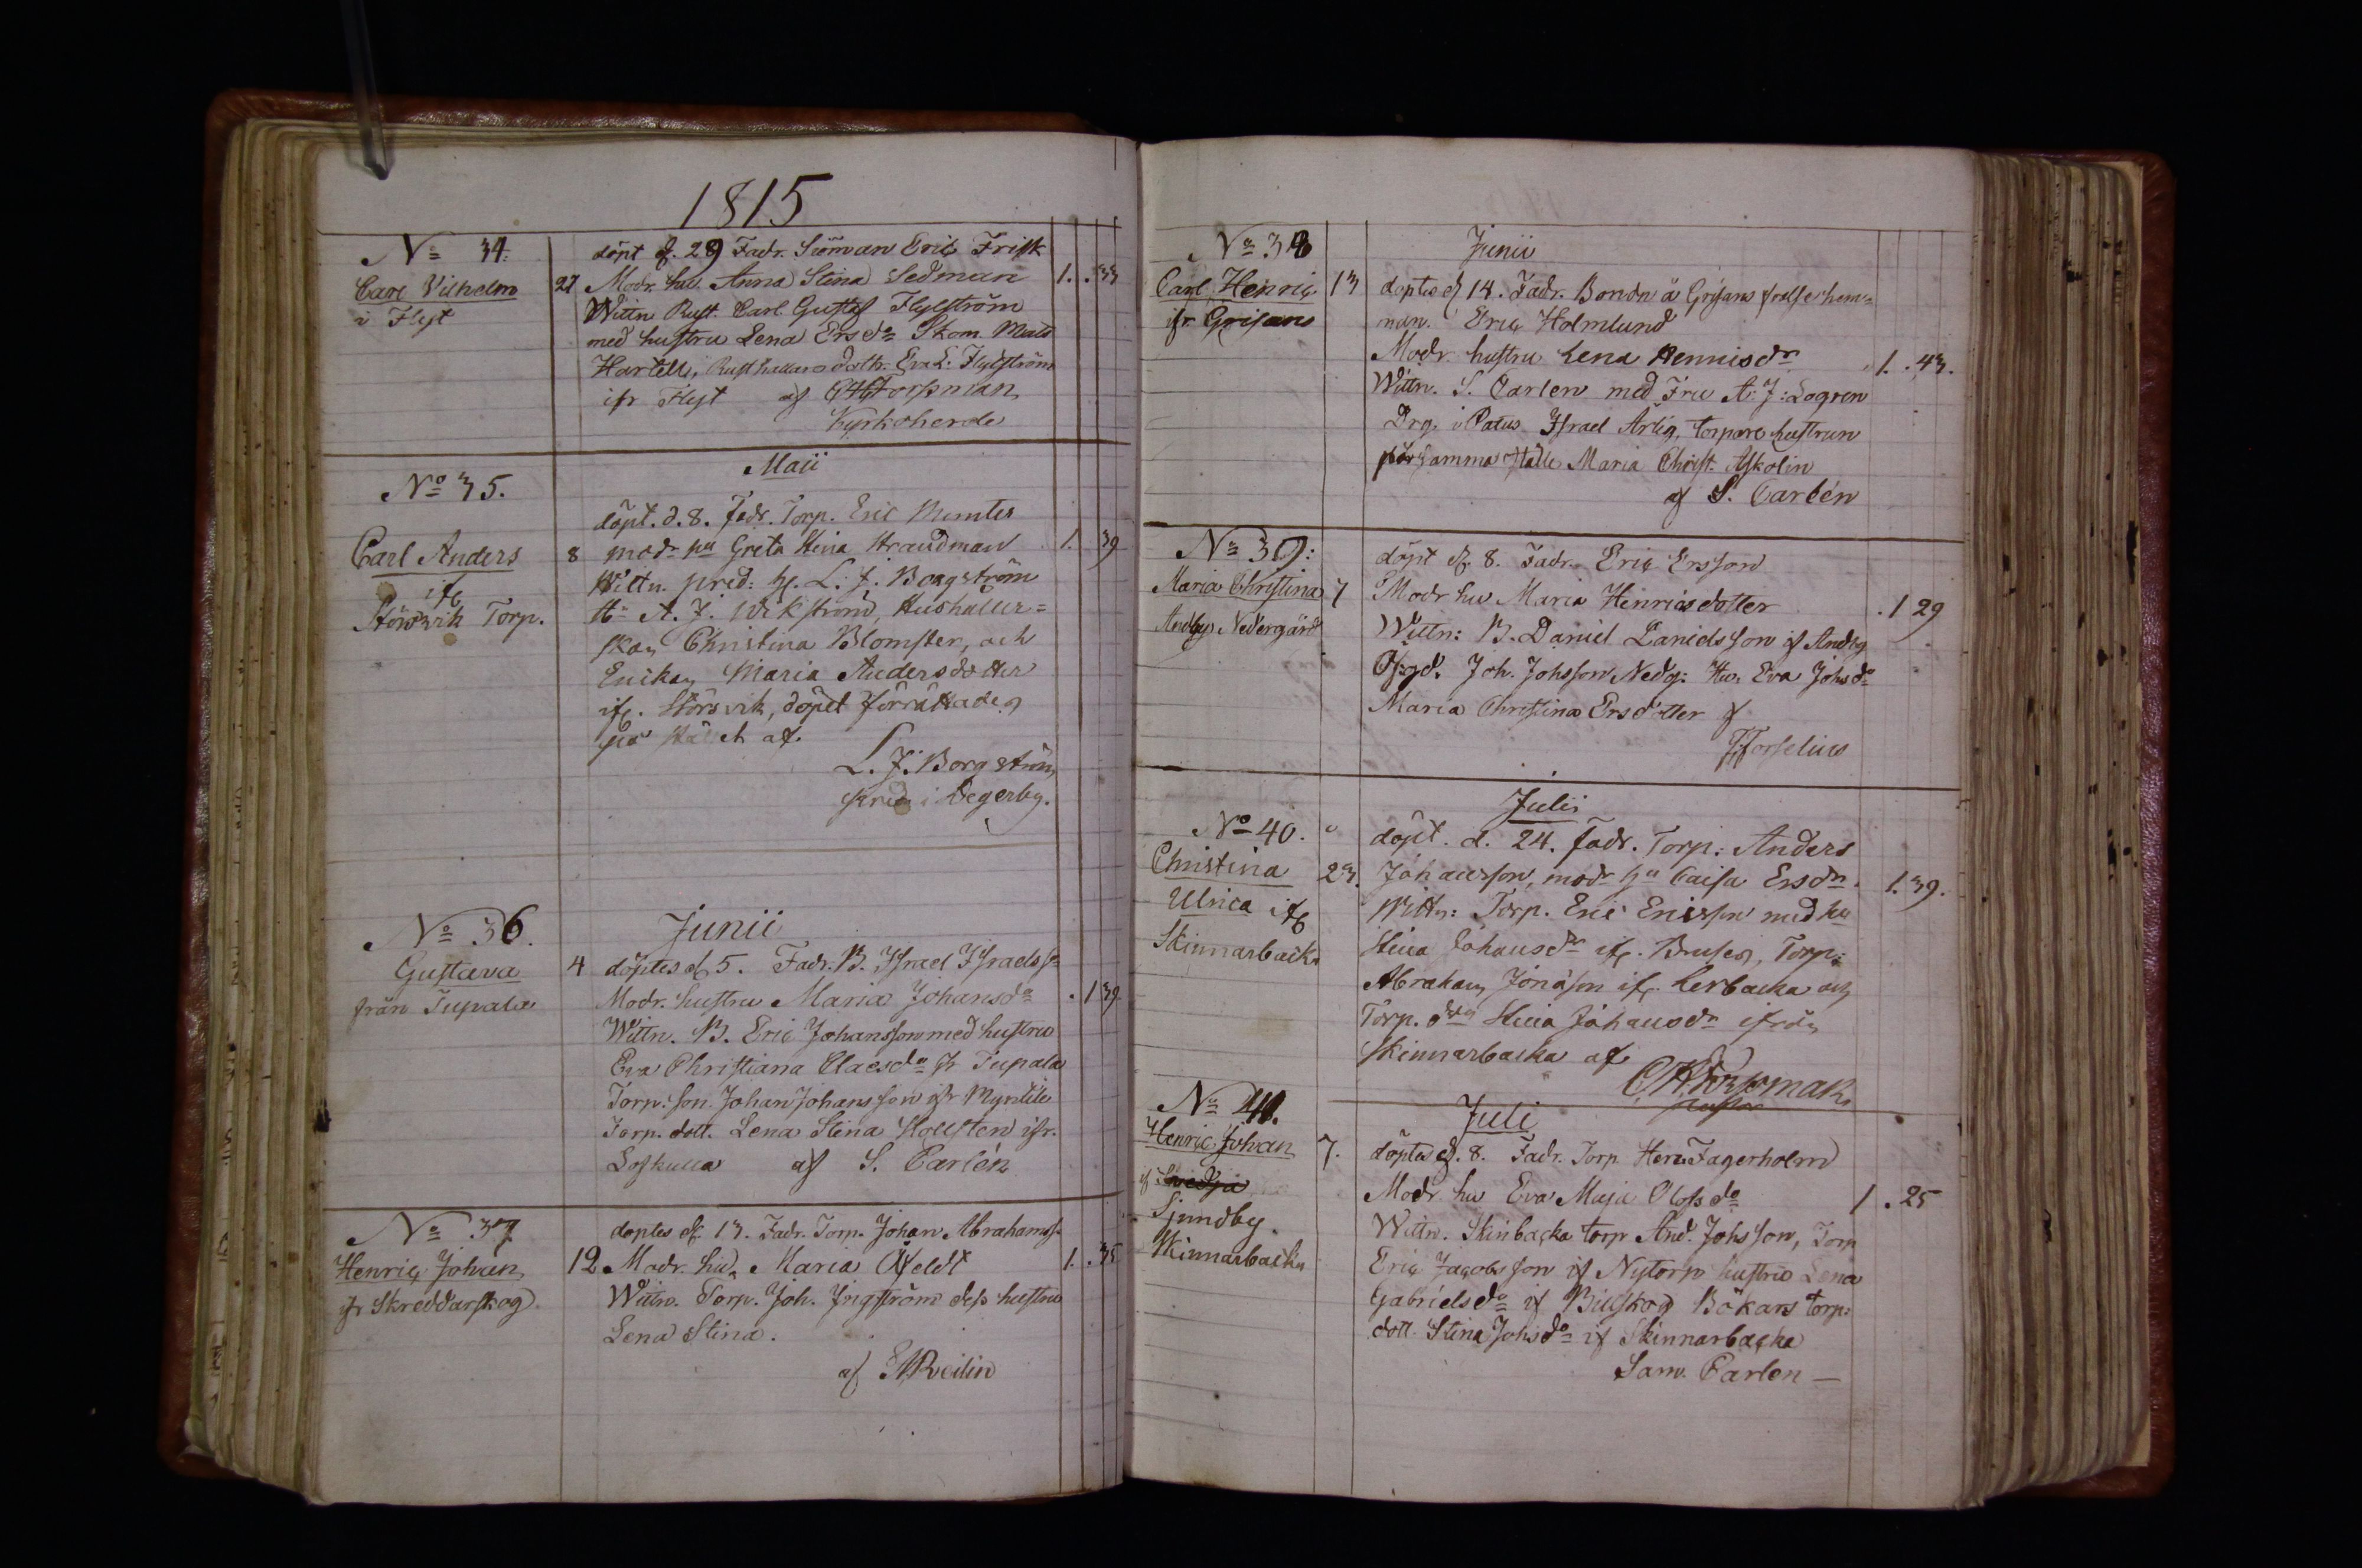 1815
No 34.
Carl Vilhelm
i Flyt
27
döpt d. 29 Fadr. Siöman Eric Frisk
Modr. hu. Anna Stina Sedman
1. . 33
Wittn Rust. Carl Gustaf Flytström
med hustru Lena Ersdr Skom. Mats
Hartell, Rusthallare doth. Eva L. Flytström
ifr Flyt af Forssman
Kyrkoherde
Maii
No 35.
Carl Anders
ifr
Störsvik Torp.
8
döpt. d. 8. Fadr. Torp. Eric Munter
modr hu Greta Stina Strandman
1. 39
Wittn. pred: H. L. J. Borgström
A. J. Wikström, Hushåller=
skan Christina Blomster, och
Enkan Maria Andersdotter
ifr. Störsvik, döpet förrättades
på stället af.
L. J. Borgström
pred. i Degerby.
No 36.
Gustava
från Tupala
4
Junii
döptes d 5. Fadr. B. Israel Israelss
Modr. hustru Maria Johansdr
. 1 39
Wittn. B. Eric Johansson med hustru
Eva Christiana Claesdr fr Tupala
Torp: son. Johan Johansson ifr Myntile
Torp. dott. Lena Stina Hollsten ifr.
Loskulla af S. Carlén
No 37
Henric Johan
fr Skreddarskog
12
döptes d. 13. Fadr. Torp. Johan Abrahamss.
Modr. hu. Maria Öfeldt
1. . 35
Wittn. Torp. Joh. Yngström dess hustru
Lena Stina.
af Reilin
No 38
Carl Henric
ifr Grisans
13
Junii
döptes d 14. Fadr. Bonden å Grisans frälse hem=
man. Eric Holmlund
Modr. hustru Lena Hennisdr
1. . 43.
Wittn. S. Carlen med Fru A: J: Logren
Drg. i Israel Arlig, torpare hustrun
på samma ställe Maria Christ. Askolin
af S. Carlén
No 39:
Maria Christina
Andby Nedergård
7
döpt d. 8. Fadr. Eric Ersson
Modr hu Maria Henricsdotter
. 1 29
Wittn: B. Daniel Danielsson if Andby
Joh. Johsson Nedg: Hu. Eva Johsdr
Maria Christina Ersdotter af
Forselius
Julii
No 40.
Christina
Ulrica ifr
Skinnarbacka
23.
döpt. d. 24. fadr. Torp: Anders
Johansson, modr hu Caisa Ersdr.
1. 39.
Wittn: Torp. Eric Ericsson med hu
Stina Johansdr ifr. Bruses, Torp:
Abraham Jonason ifr. Kerbacka och
Torp. dottr Stina Johansdr ifrån
Skinnarbacka af
Forssman
No 41.
Henric Johan
if Svedja
Sjundby.
Skinnarbacka
7.
Juli
döptes d. 8. Fadr. Torp Henr. Fagerholm
Modr hu Eva Maja Olofsdr
1 . 25
Wittn. Skinbacka torp And. Johsson, Torp
Eric Jacobsson if Nytorp hustru Lena
Gabrielsdr if Billskog Bökars torp:
dott. Stina Johsdr if Skinnarbacka
Sam. Carlen —